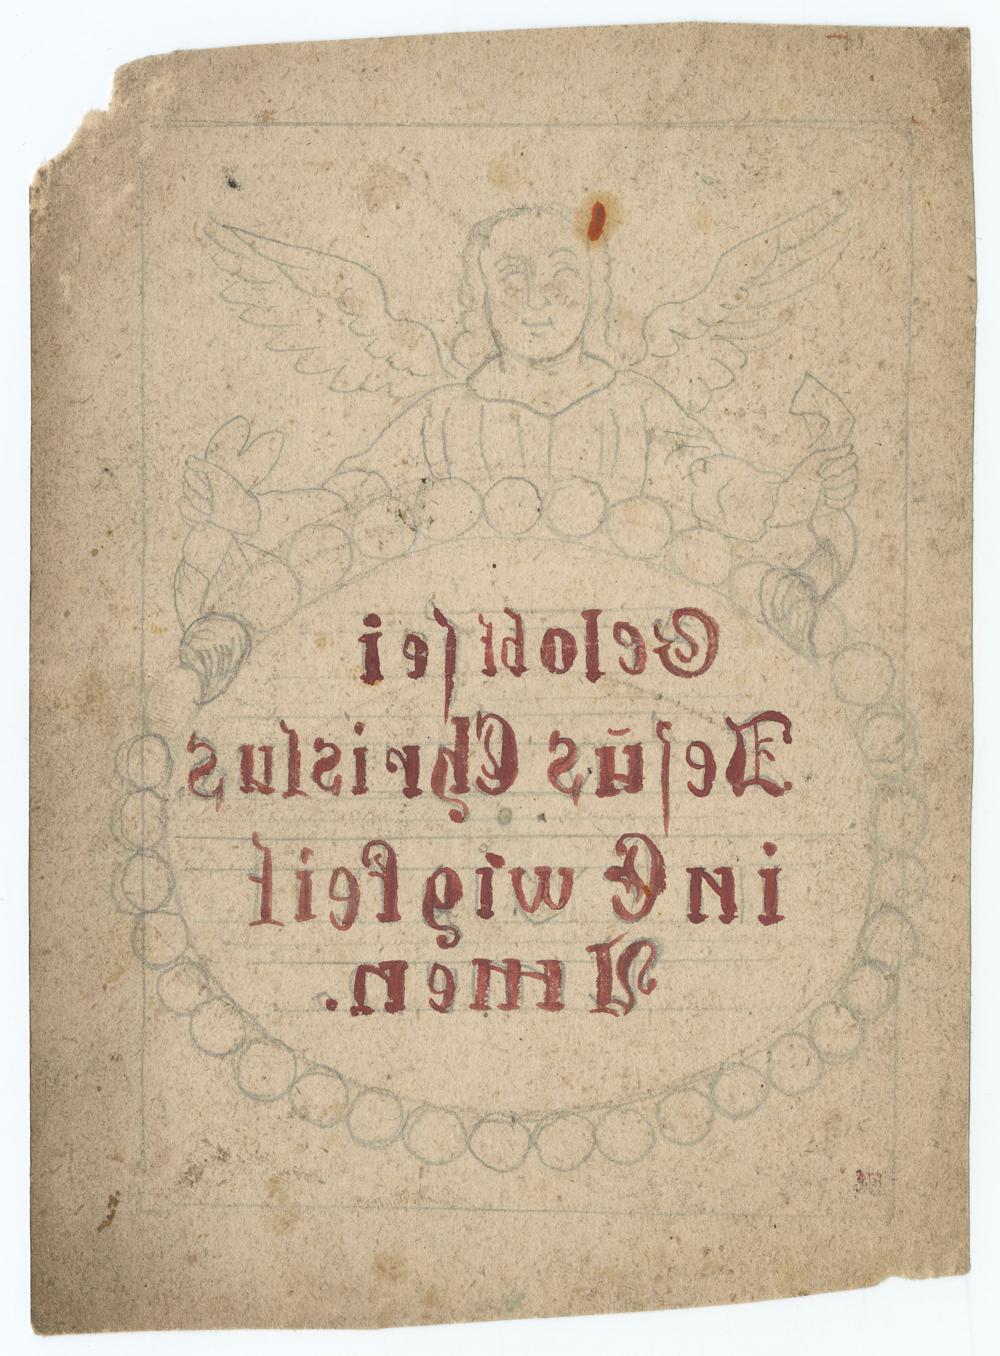 Gelobt ſei
Jeſus Chriſtus
in Ewigkeit
Amen.